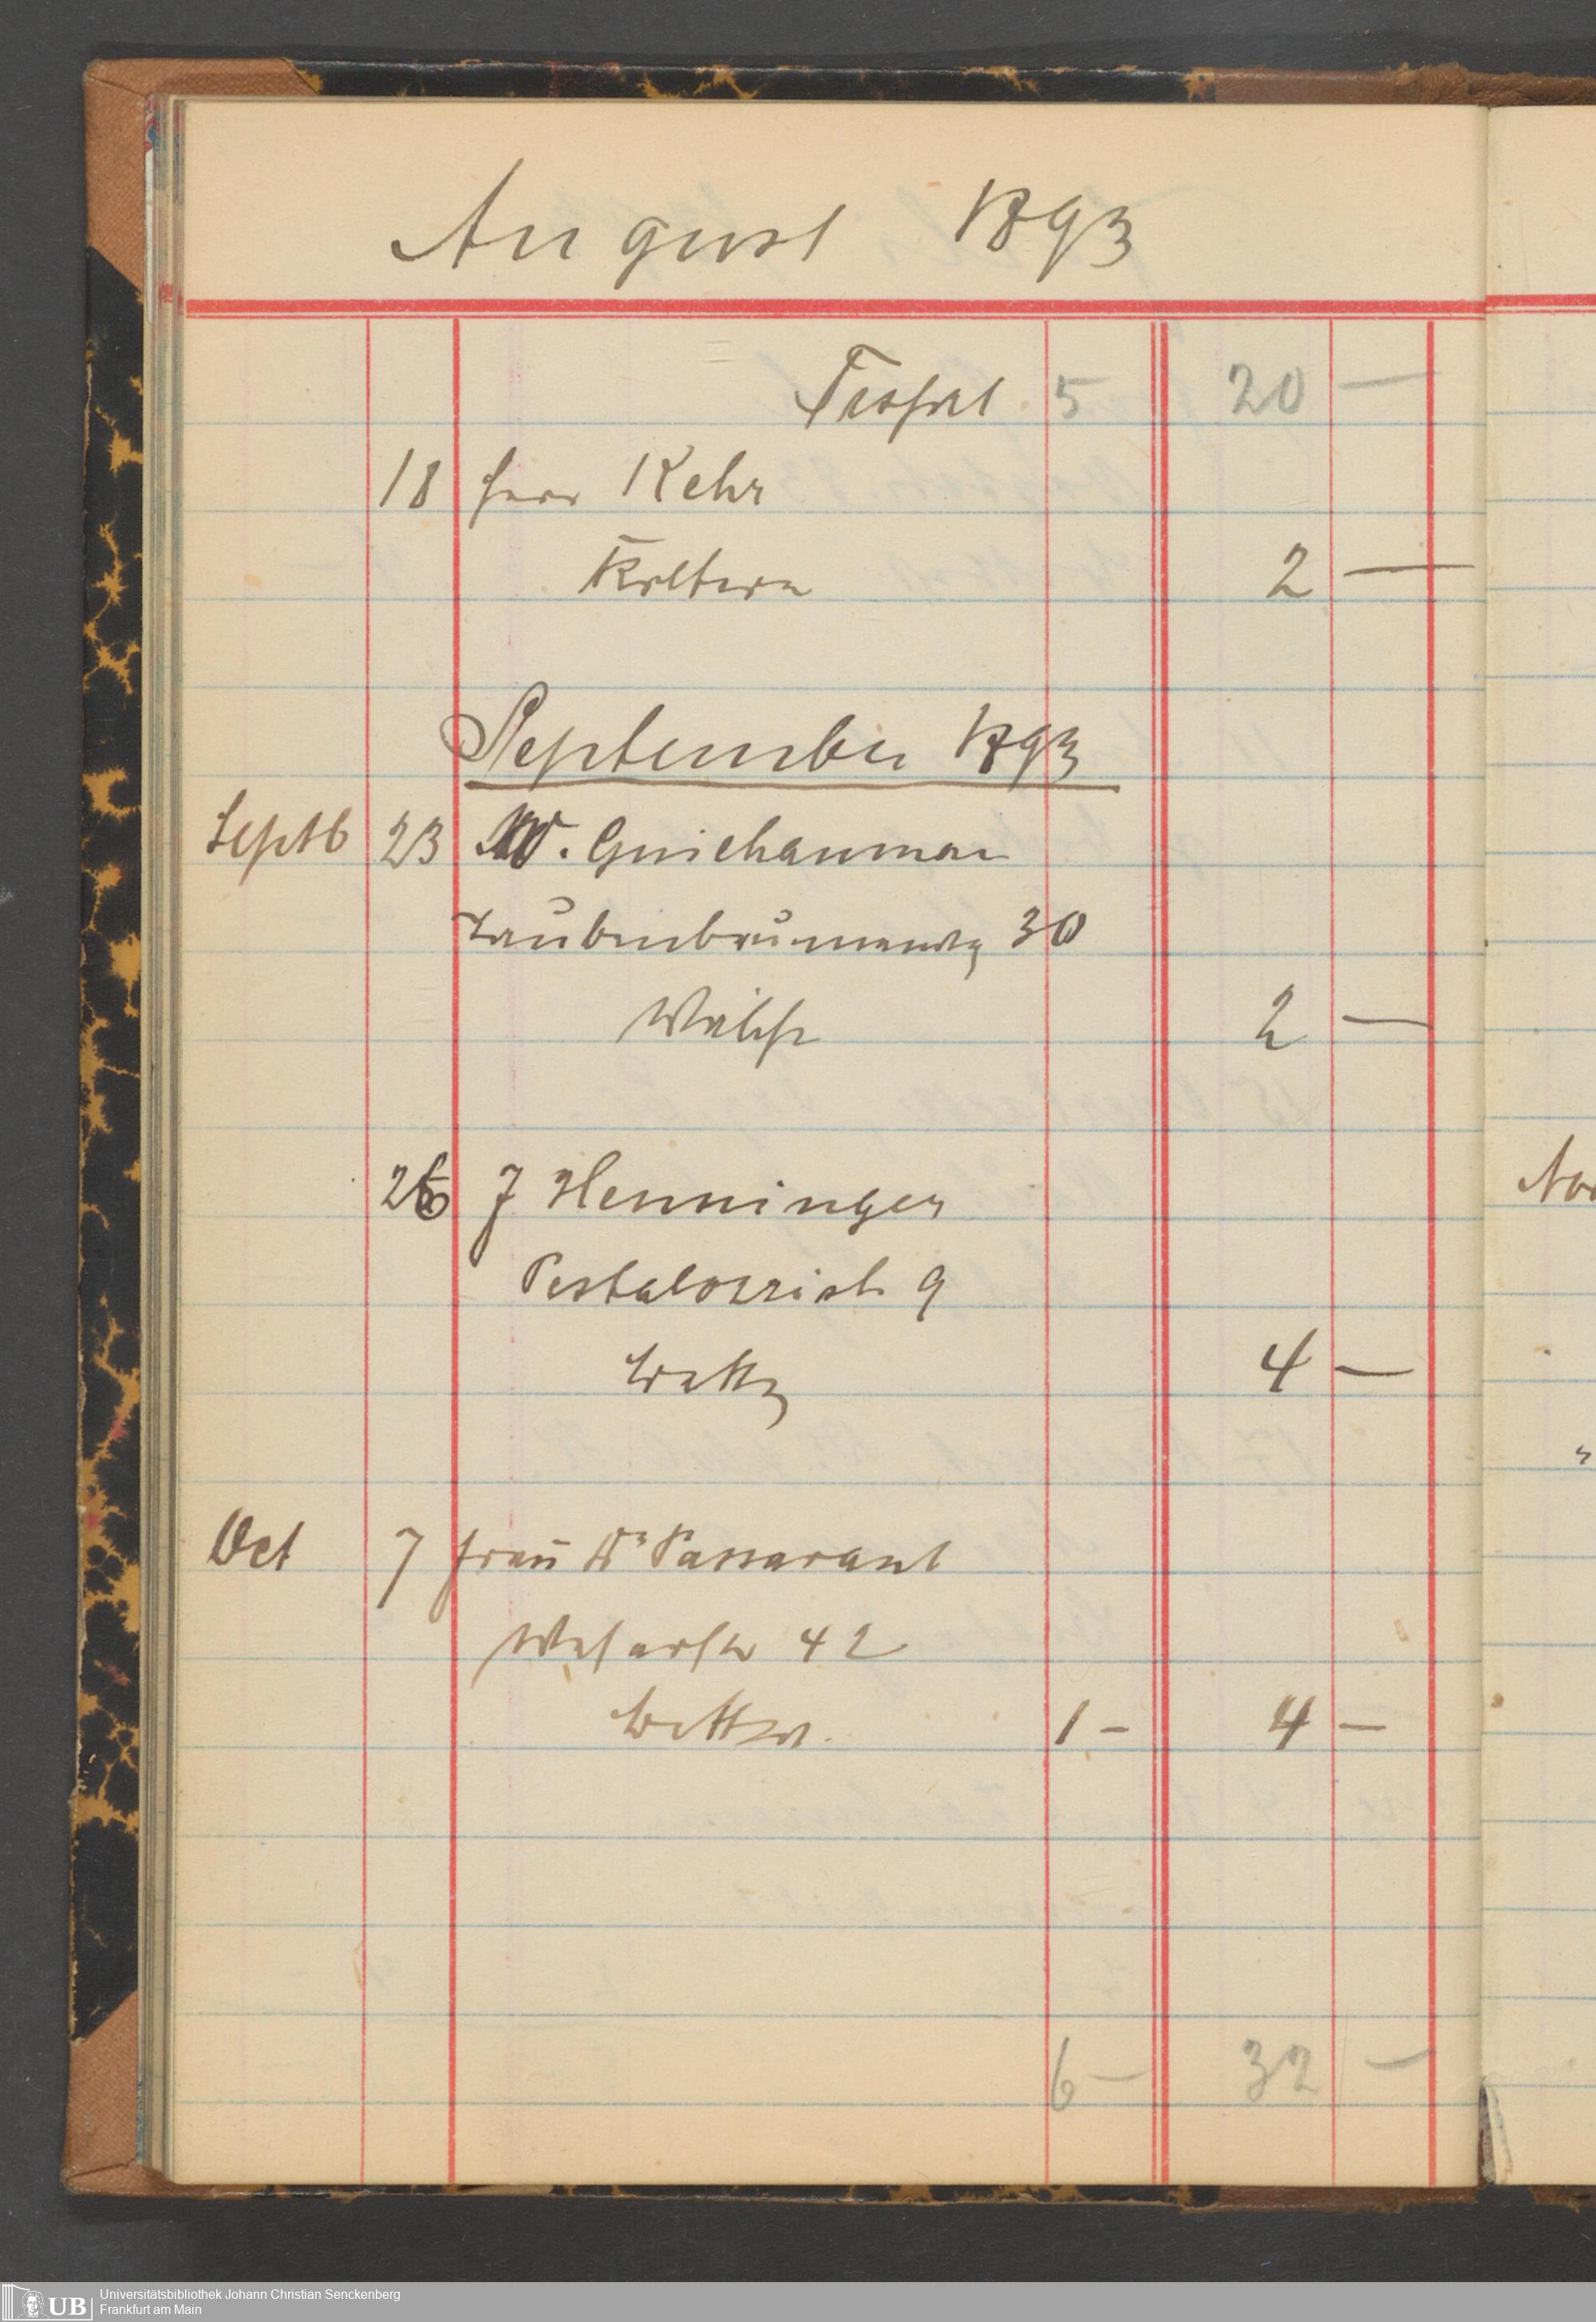 August 1893
Trsprt 5 20 —
18 Herr Kehr
Koltern 2 —
September 1893
Septb 23 W. Guiehauman
Taubenbrunnenwg 30
Wäsche 2 —
26 J Henninger
Pestalozzistr 9
Bettz 4 —
Oct 7 Frau Dr Passavant
Weserstr 42
Bettw. 1 - 4 —
6 — 32 —
Nov
UB Universitätsbibliothek Johann Christian Senckenberg
Frankfurt am Main